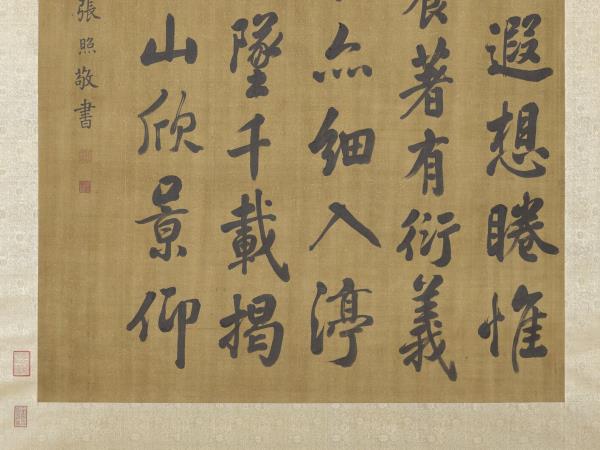 遐想睠惟
著有衍義
細入渟
墜千載揭
山欣景仰
張照敬書